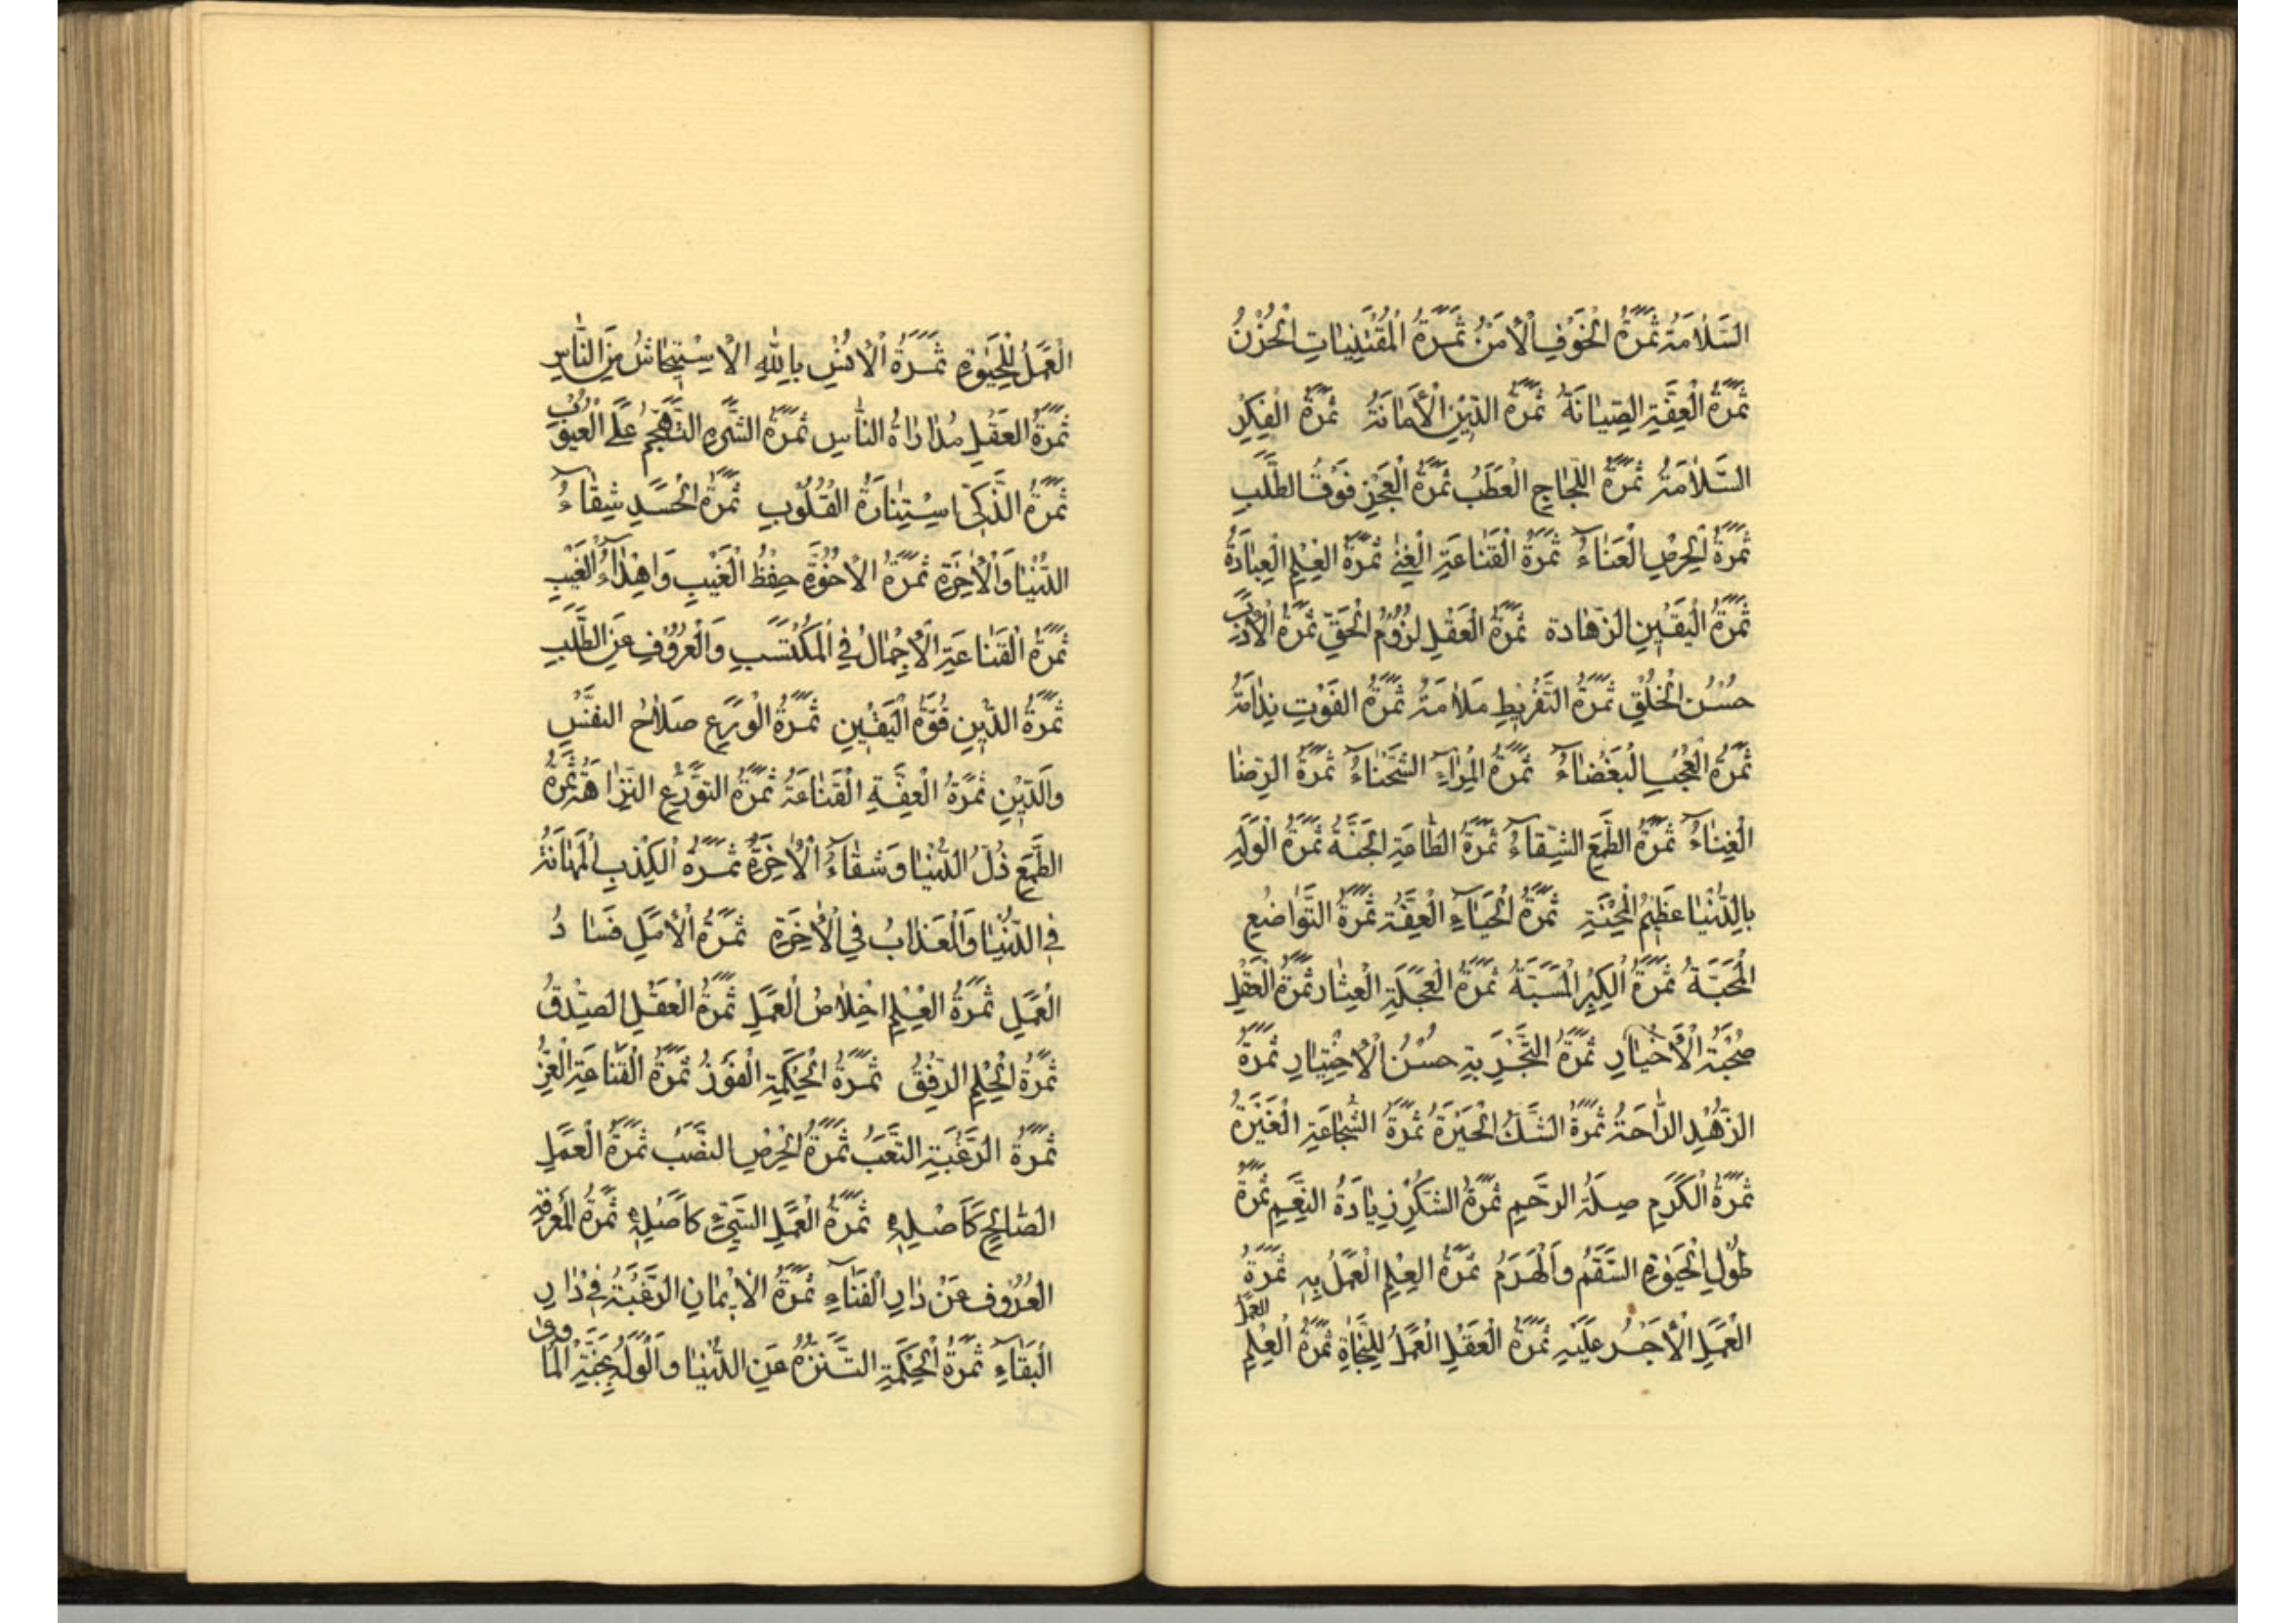 السَّلَامَةُ ثَمَرَةُ الْخَوْفِ الْأَمْنُ ثَمَرَةُ الْمُقْتَنِيَاتِ الْحُزْنُ
ثَمَرَةُ الْعِفَّةِ الصِّيَانَةُ ثَمَرَةُ الدِّيْنِ الْأَمَانَةُ ثَمَرَةُ الْفِكْرِ
السَّلَامَةُ ثَمَرَةُ اللَّجَاجِ الْعَطَبُ ثَمَرَةُ الْعَجْزِ فَوْتُ الطَّلَبِ
ثَمَرَةُ الْحِرْصِ الْعَنَاءُ ثَمَرَةُ الْقَنَاعَةِ الْغِنَى ثَمَرَةُ الْعِلْمِ الْعِبَادَةُ
ثَمَرَةُ الْيَقِيْنِ الزَّهَادة ثَمَرَةُ الْعَقْلِ لُزُوْمُ الْحَقِّ ثَمَرَةُ الْأَدَبِ
حُسْنُ الْخُلُقِ ثَمَرَةُ التَّفْرِيْطِ مَلَامَةُ ثَمَرَةُ الْفَوْتِ نِدَامَةُ
ثَمَرَةُ الْعُجْبِ الْبَغْضَاءُ ثَمَرَةُ الْمِرَاءِ الشَّحْنَاءُ ثَمَرَةُ الرِّضَا
الْغِنَاءُ ثَمَرَةُ الطَّمَعِ الشِّقَاءُ ثَمَرَةُ الطَّاعَةِ الْجَنَّةُ ثَمَرَةُ الْوَلَهِ
بِالدُّنْيَا عَظِيْمُ الْمِحْنَةِ ثَمَرَةُ الْحَيَاءِ الْعِفَّةُ ثَمَرَةُ التَّوَاضُعِ
الْمَحَبَّةُ ثَمَرَةُ الْكِبْرِ الْمَسَبَّةُ ثَمَرَةُ الْعَجَلَةِ الْعِثَار ثَمَرَةُ الْعَقْلِ
صُحْبَةُ الْأَخْيَارِ ثَمَرَةُ التَّجْرِبَةِ حُسْنُ الْاِخْتِيَارِ ثَمَرَةُ
الزُّهْدِ الرَّاحَةُ ثَمَرَةُ الشَّكِّ الْحَيْرَةُ ثَمَرَةُ الشُّجَاعَةِ الْغَيْرَةُ
ثَمَرَةُ الْكَرَمِ صِلَةُ الرَّحِمِ ثَمَرَةُ الشُّكْرِ زِيَادَةُ النِّعَمِ ثَمَرَةُ
طُوْلِ الْحَيٰوةِ السَّقَمُ وَالْهَرَمُ ثَمَرَةُ الْعِلْمِ الْعَمَلُ بِهِ ثَمَرَةُ
الْعَمَلِ الْأَجْرُ عَلَيْهِ ثَمَرَةُ الْعَقْلِ الْعَمَلُ لِلنَّجَاةِ ثَمَرَةُ الْعِلْمِ العمل
الْعَمَلُ لِلْحَيٰوةِ ثَمَرَةُ الْأُنْسِ بِاللهِ الْاِسْتِيْحَاشُ مِنَ النَّاسِ
ثَمَرَةُ الْعَقْلِ مُدَارَاةُ النَّاسِ ثَمَرَةُ الشَّرَهِ التَّهَجُّمُ عَلَى الْعُيُوْبِ
ثَمَرَةُ الذِّكْرِ اسْتِنَارَةُ الْقُلُوْبِ ثَمَرَةُ الْحَسَدِ شِقَاءُ
الدُّنْيَا وَالْاٰخِرَةِ ثَمَرَةُ الْاُخُوَّةِ حِفْظُ الْغَيْبِ وَاهْدَاءُ الْعَيْبِ
ثَمَرَةُ الْقَنَاعَةِ الْاِجْمَالُ فِي الْمُكْتَسَبِ وَالْعُزُوْفِ عَنِ الطَّلَبِ
ثَمَرَةُ الدِّيْنِ قُوَّةُ الْيَقِيْنِ ثَمَرَةُ الْوَرَعِ صَلَاحُ النَّفْسِ
وَالدِّيْنِ ثَمَرَةُ الْعِفَّةِ الْقَنَاعَةُ ثَمَرَةُ التَّوَرُّعِ النَّزَاهَةُ ثَمَرَةُ
الطَّمَعِ ذُلُّ الدُّنْيَا وَشَقَاءُ الْاٰخِرَةِ ثَمَرَةُ الْكِذْبِ الْمَهَانَةُ
فِي الدُّنْيَا وَالْعَذَابُ فِي الْاٰخِرَةِ ثَمَرَةُ الْأَمَلِ فَسَادُ
الْعَمَلِ ثَمَرَةُ الْعِلْمِ اخْلَاصُ الْعَمَلِ ثَمَرَةُ الْعَقْلِ الصِّدْقُ
ثَمَرَةُ الْحِلْمِ الرِّفْقُ ثَمَرَةُ الْحِكْمَةِ الْفَوْزُ ثَمَرَةُ الْقَنَاعَةِ الْعِزُّ
ثَمَرَةُ الرَّغْبَةِ التَّعَبُ ثَمَرَةُ الْحِرْصِ النَّصَبُ ثَمَرَةُ الْعَمَلِ
الصَّالِحِ كَأَصْلِهِ ثَمَرَةُ الْعَمَلِ السَّيِّئِ كَأَصْلِهِ ثَمَرَةُ الْمَعْرِفَةِ
الْعُزُوْفُ عَنْ دَارِ الْفَنَاءِ ثَمَرَةُ الْاِيْمَانِ الرَّغْبَةُ فِيْ دَارِ
الْبَقَاءِ ثَمَرَةُ الْحِكْمَةِ التَّنَزُّهُ عَنِ الدُّنْيَا وَالْوَلَهُ بِجَنَّةِ الْمَأوى